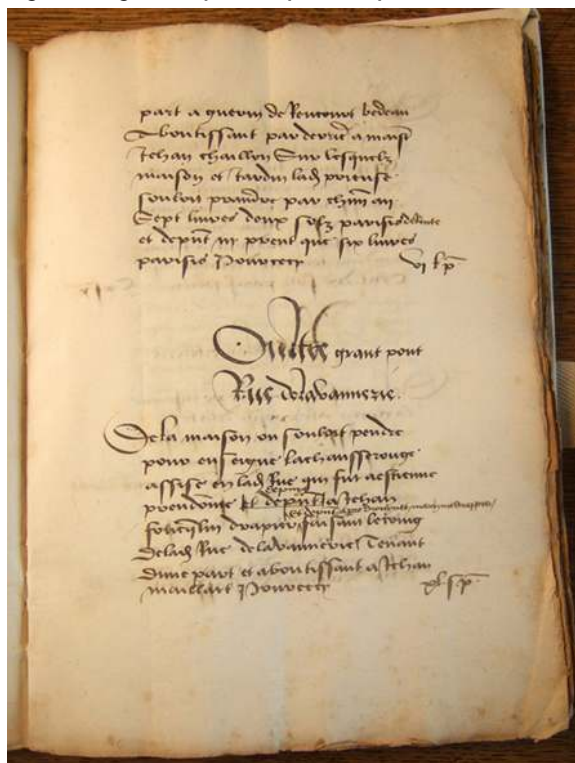 part a guerin de Rencourt bedeau
Aboutissant par derrie a maist
Jehan chaillou Sur lesquelz
maison et Jardin lad prieuse
souloit prandre par chun an
Sept livres deux solz parisis de Rente
et depnt ny prent que six livres
parisis Pource cy vi l p
Oultre grant pont
Rue de la vannerie.
De la maison ou souloit pendre
pour enseigne la chausse rouge
assise en lad Rue qui fut a estienne
depuis
et depnt a Jehan
drapier faisant le coing
de lad Rue de la vannerie Tenant
dune part et aboutissant a Jehan
maillart Pource cy xl s p